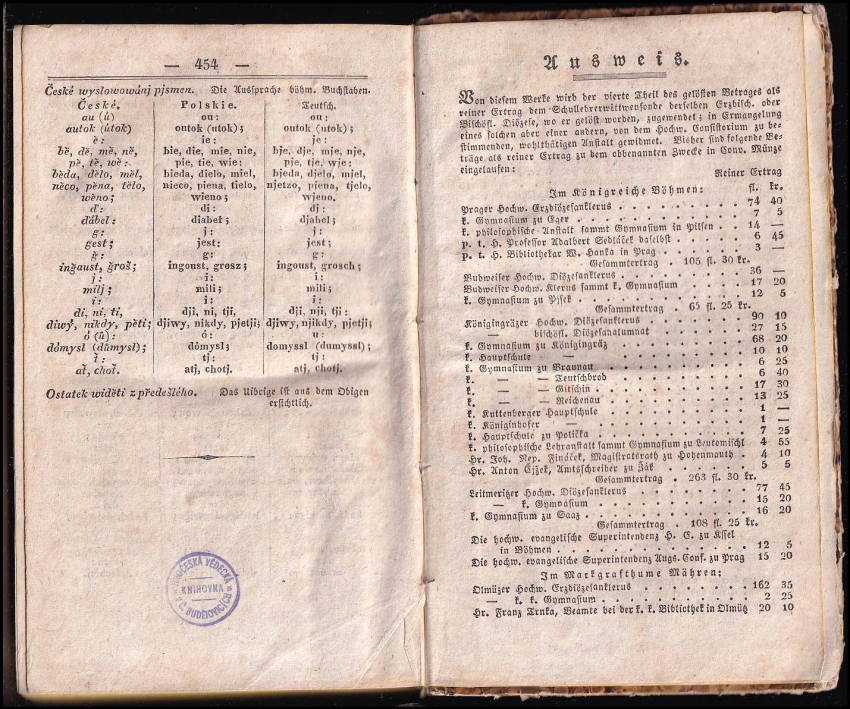 — 454 —
České wyslowowánj pjsmen. Die Aussprache böhm. Buchstaben.
České. Polskie. Teutsch.
au (ů) ou: ou:
autok (útok) outok (utok); outok (utok);
ě: ie: je:
bě, dě, mě, ně, bie, die, mie, nie, bje, dje, mje, nje,
pě, tě, wě: pie, tie, wie: pje, tje, wje:
běda, dělo, měl, bieda, dielo, miel, bjeda, djelo, mjel,
něco, pěna, tělo, nieco, piena, tielo, njetzo, pjena, tjelo,
wěno; wieno; wjeno;
ď: di: dj:
ďábel: diabel; djabel;
g: j: j:
gest; jest: jest;
ğ: g: g:
inğaust, ğroš; ingoust, grosz; ingoust, grosch;
j: i: i:
milj; mili; mili;
i: i: i:
di, ni, ti, dji, ni, tji, dji, nji, tji:
diwý, nikdy, pěti; djiwy, nikdy, pjetji; djiwy, njikdy, pjetji;
ó (ů): ó: u:
dômysl (důmysl); dômysl; domyssl (dumyssl);
ť: tj: tj:
ať, choť. atj, chotj. atj, chotj.
Ostatek widěti z předešlého. Das Uibrige ist aus dem Obigen
ersichtlich.
JIHOČESKÁ VĚDECKÁ
KNIHOVNA
V Č. BUDĚJOVICÍCH
Ausweis.
Von diesem Werke wird der vierte Theil des gelösten Betrages als
reiner Ertrag dem Schullehrerwittwenfonde derselben Erzbisch. oder
Bischöfl. Diözese, wo er gelöst worden, zugewendet; in Ermangelung
eines solchen aber einer andern, von dem Hochw. Consistorium zu be-
stimmenden, wohlthätigen Anstalt gewidmet. Bisher sind folgende Be-
träge als reiner Ertrag zu dem obbenannten Zwecke in Conv. Münze
eingelaufen:
Reiner Ertrag
Im Königreiche Böhmen: fl. kr.
Prager Hochw. Erzdiözesanklerus 74 40
k. Gymnasium zu Eger 7 5
k. philosophische Anstalt sammt Gymnasium in Pilsen 14 —
p. t. H. Professor Adalbert Sedláček daselbst 6 45
p. t. H. Bibliothekar W. Hanka in Prag 3 —
Gesammtertrag . 105 fl. 30 kr.
Budweiser Hochw. Diözesanklerus 36 —
Budweiser Hochw. Klerus sammt k. Gymnasium 17 20
k. Gymnasium zu Pisek 12 5
Gesammtertrag . 65 fl. 25 kr.
Königingrätzer Hochw. Diözesanklerus 90 10
— bischöfl. Diözesanalumnat 27 15
k. Gymnasium zu Königingrätz 68 20
k. Hauptschule — 10 10
k. Gymnasium zu Braunau 6 25
k. — — Teutschbrod 6 40
k. — — Gitschin 17 30
k. — — Reichenau 13 25
k. Kuttenberger Hauptschule 1 —
k. Königinhofer — 1 —
k. Hauptschule zu Polička 7 25
k. philosophische Lehranstalt sammt Gymnasium zu Leutomischl 4 55
Hr. Joh. Nep. Fináček, Magistratsrath zu Hohenmauth 4 10
Hr. Anton Čjžek, Amtschreiber zu Žák 5 5
Gesammtertrag . 263 fl. 30 kr.
Leitmeritzer Hochw. Diözesanklerus 77 45
— k. Gymnasium 15 20
k. Gymnasium zu Saaz 16 20
Gesammtertrag . 108 fl. 25 kr.
Die hochw. evangelische Superintendenz H. C. zu Klsel
in Böhmen 12 5
Die hochw. evangelische Superintendenz Augs. Conf. zu Prag 15 20
Im Markgrafthume Mähren:
Olmüzer Hochw. Erzdiözesanklerus 162 35
— k. k. Gymnasium 2 25
Hr. Franz Trnka, Beamte bei der k. k. Bibliothek in Olmütz 20 10